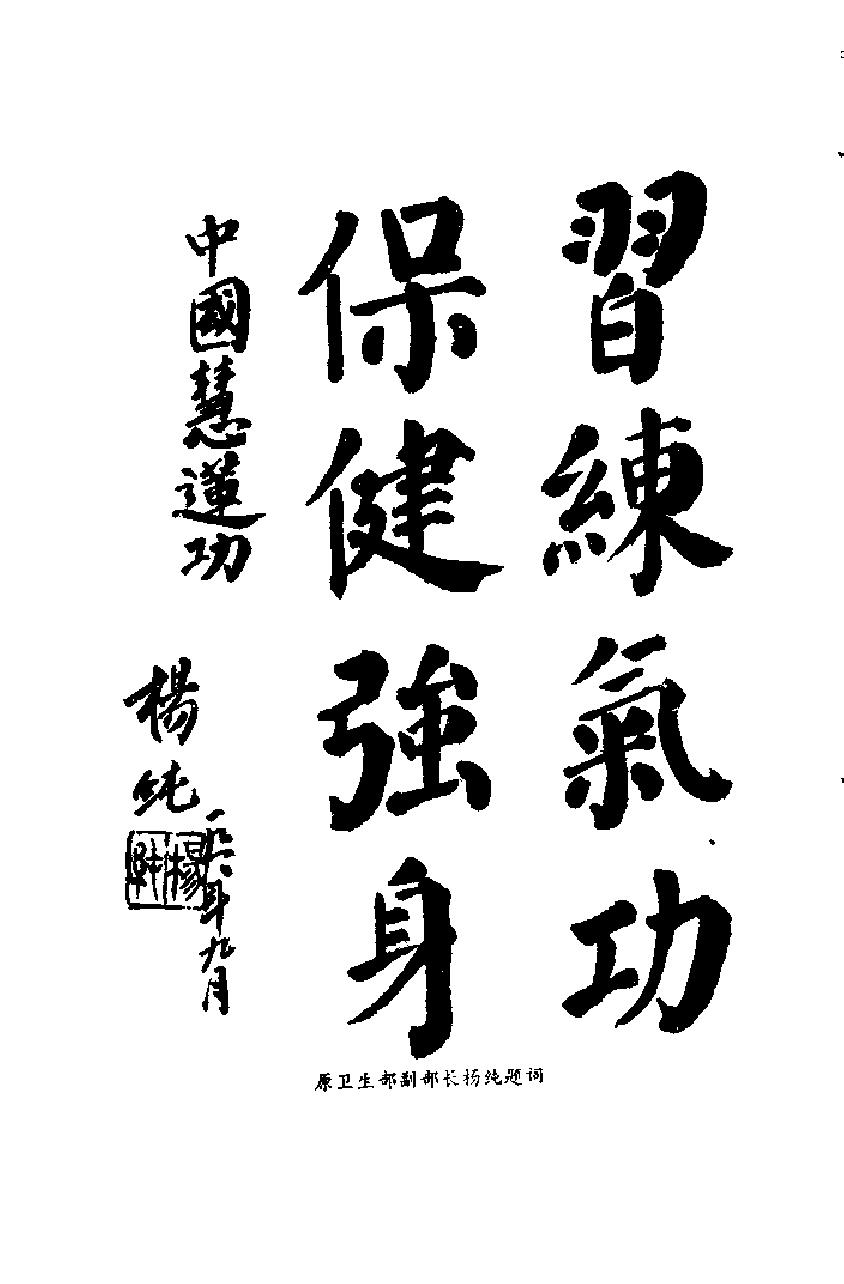 習練氣功
保健強身
中國慧蓮功
楊純
年九月
原卫生部副部长杨纯题词